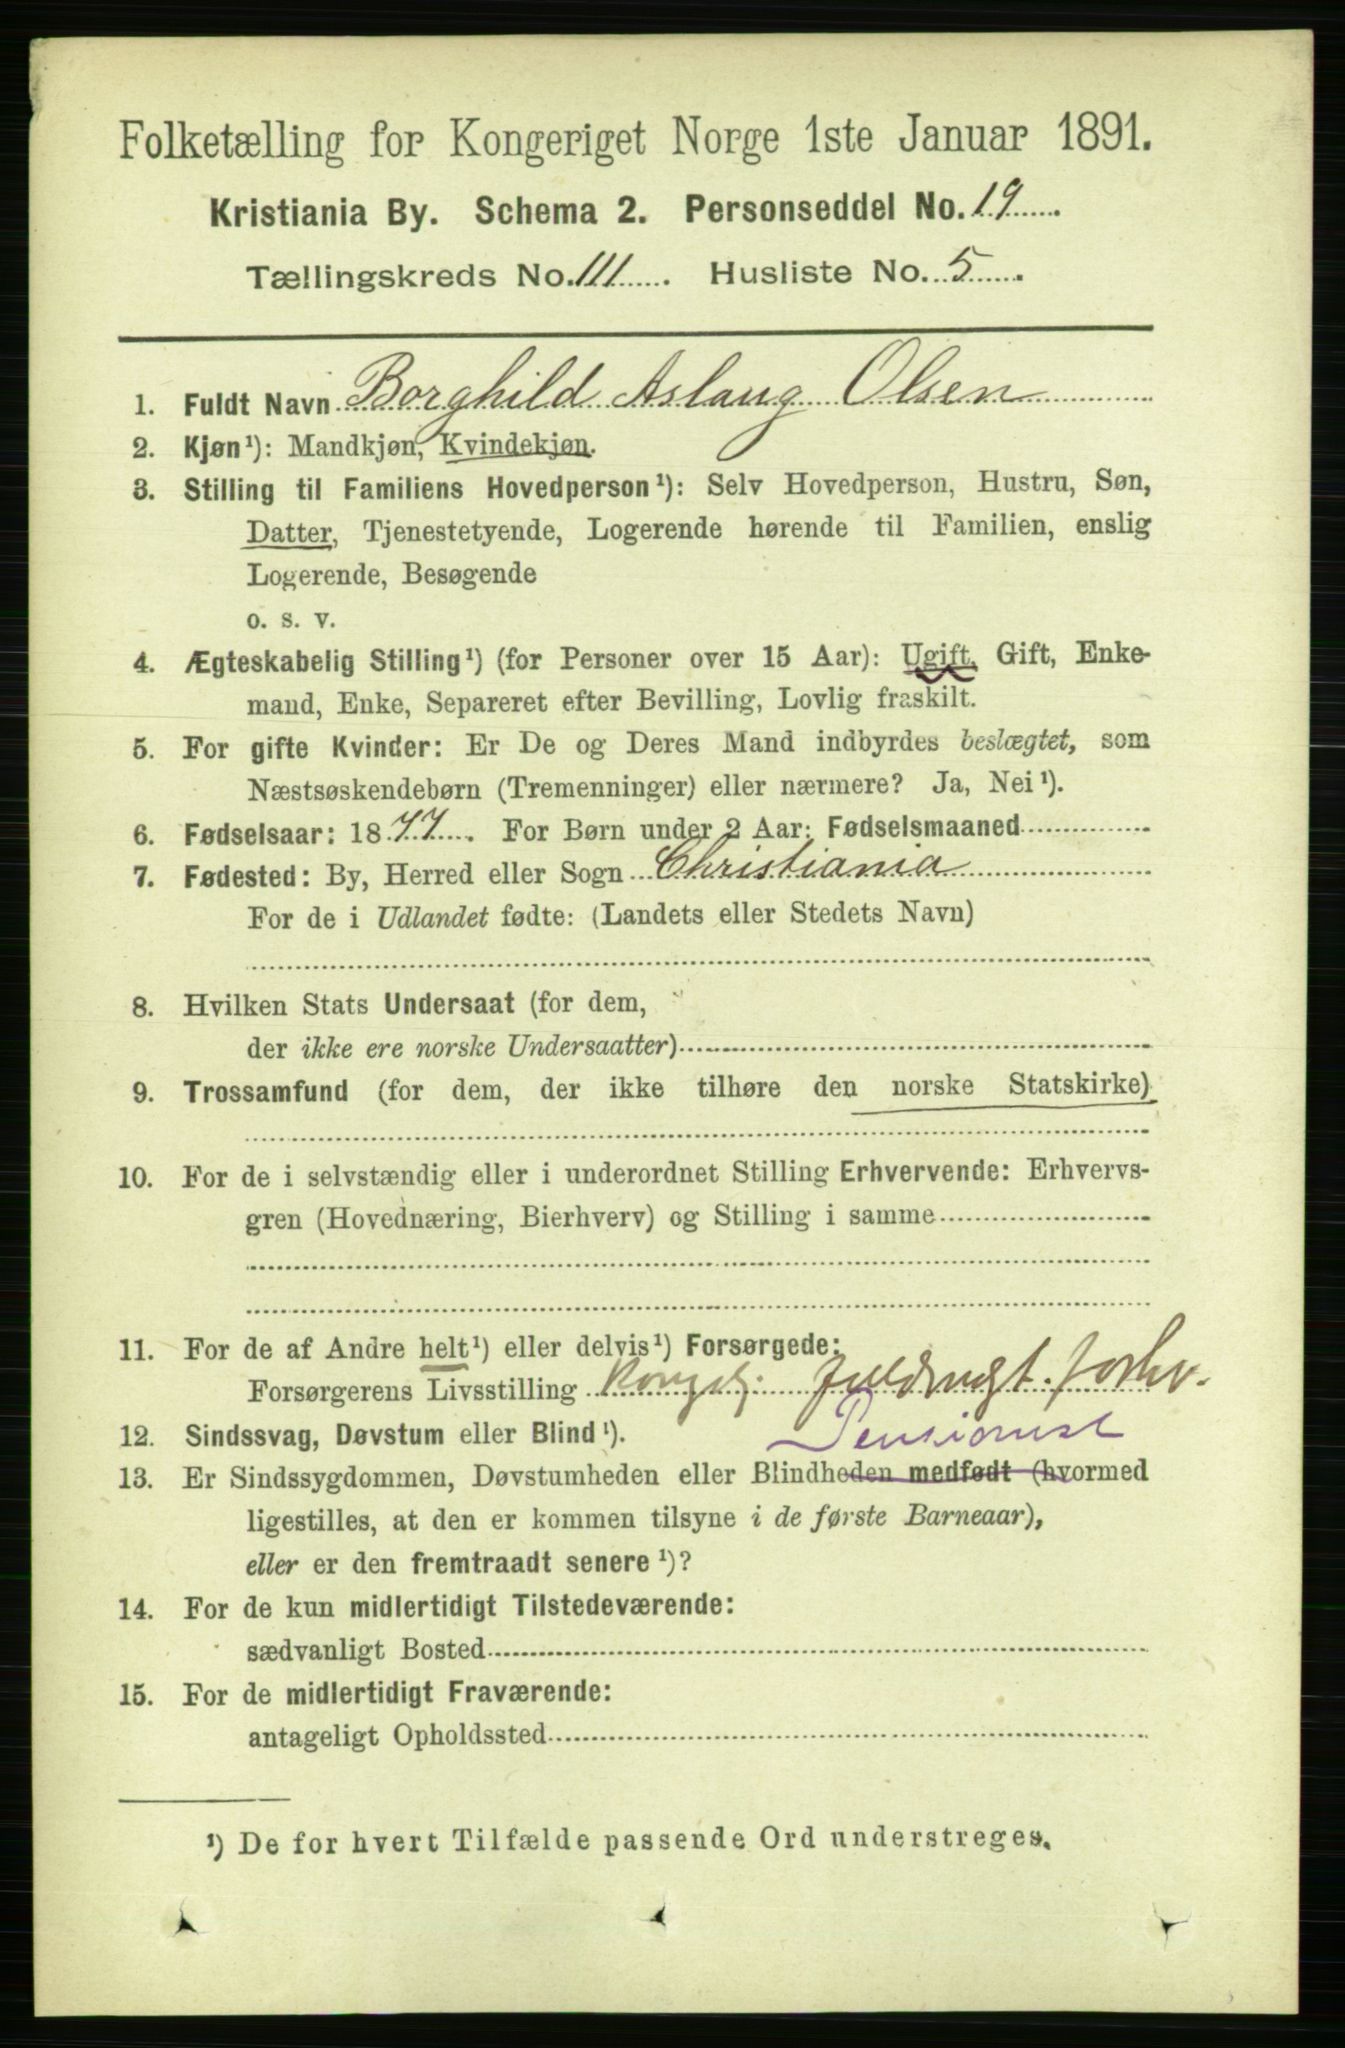 Folketælling for Kongeriget Norge 1ste Januar 1891.
Kristiania By. Schema 2. Personseddel No. 19
Tællingskreds No. 111. Husliste No. 5.
1. Fuldt Navn Borghild Aslaug Olsen
2. Kjøn¹): Mandkjøn, Kvindekjøn.
3. Stilling til Familiens Hovedperson¹): Selv Hovedperson, Hustru, Søn,
Datter, Tjenestetyende, Logerende hørende til Familien, enslig
Logerende, Besøgende
o. s. v.
4. Ægteskabelig Stilling¹) (for Personer over 15 Aar): Ugift, Gift, Enke-
mand, Enke, Separeret efter Bevilling, Lovlig fraskilt.
5. For gifte Kvinder: Er De og Deres Mand indbyrdes beslægtet, som
Næstsøskendebørn (Tremenninger) eller nærmere? Ja, Nei¹).
6. Fødselsaar: 1877. For Børn under 2 Aar: Fødselsmaaned
7. Fødested: By, Herred eller Sogn Christiania
For de i Udlandet fødte: (Landets eller Stedets Navn)
8. Hvilken Stats Undersaat (for dem,
der ikke ere norske Undersaatter)
9. Trossamfund (for dem, der ikke tilhøre den norske Statskirke)
10. For de i selvstændig eller i underordnet Stilling Erhvervende: Erhvervs-
gren (Hovednæring, Bierhverv) og Stilling i samme
11. For de af Andre helt¹) eller delvis¹) Forsørgede:
Forsørgerens Livsstilling fuldmgt. forhv.
Pensionist
12. Sindssvag, Døvstum eller Blind¹).
13. Er Sindssygdommen, Døvstumheden eller Blindheden medfødt (hvormed
ligestilles, at den er kommen tilsyne i de første Barneaar),
eller er den fremtraadt senere¹)?
14. For de kun midlertidigt Tilstedeværende:
sædvanligt Bosted
15. For de midlertidigt Fraværende:
antageligt Opholdssted
¹) De for hvert Tilfælde passende Ord understreges.